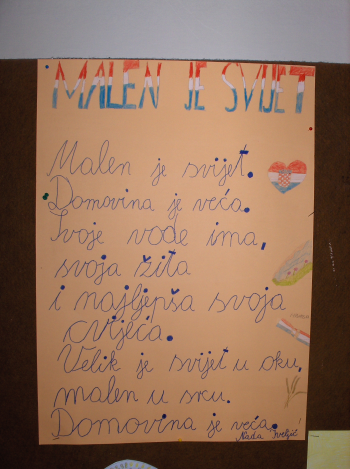 MALEN JE SVIJET
Malen je svijet.
Domovina je veća.
Svoje vode ima,
svoja žita
i najljepša svoja
cvijeća.
Velik je svijet u oku,
malen u srcu.
Domovina je veća!
Nada Iveljić